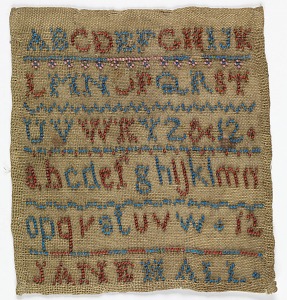 ABCDEFGHIJK
LMNOPQRST
UVWXYZ
abcdefghijklmn
opqrstuvw. 12
JANE HALL.